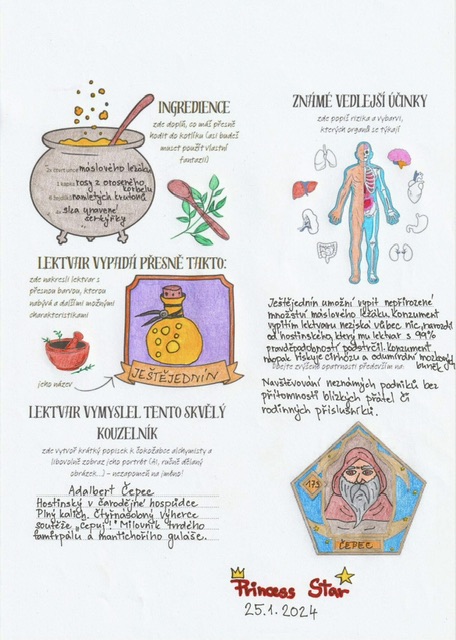 INGREDIENCE
zde doplň, co máš přesně
hodit do kotlíku (asi budeš
muset použít vlastní
fantazii)
2x čtvrtlitr máslového ležáku
1 kapka rosy z otoseného
korbelu
6 bezděků namletých krutonů
2x slza unavené
servírky
LEKTVAR VYPADÁ PŘESNĚ TAKTO:
zde nakresli lektvar s
přesnou barvou, kterou
nabývá a dalšími možnými
charakteristikami
jeho název
JEŠTĚJEDNIN
LEKTVAR VYMYSLEL TENTO SKVĚLÝ
KOUZELNÍK
zde vytvoř krátký popisek k čokožabce alchymisty a
libovolně zobraz jeho portrét (AI, ručně dělaný
obrázek...) – nezapomeň na jméno!
Adalbert Čepec
Hostinský v čarodějné hospůdce
Plný kalich. Čtrnásobný výherce
soutěže „čepuj!" Milovník tvrdého
famfrpálu a mantichořího guláše.
ZNÁMÉ VEDLEJŠÍ ÚČINKY
zde popiš rizika a vybarvi,
kterých orgánů se týkají
Ještějednin umožní vypít nepřirozené
množství máslového ležáku. Konzument
vypitím lektvaru nezíská vůbec nic, narozdíl
od hostinského, který mu lektvar s 99%
pravděpodobností podstrčil. Konzument
naopak riskuje cirhózu a odumírání mozkových
buněk
dbejte zvýšené opatrnosti především na:
Navštěvování neznámých podniků bez
přítomnosti blízkých přátel či
rodinných příslušníků.
175
ČEPEC
Princess Star
25.1.2024